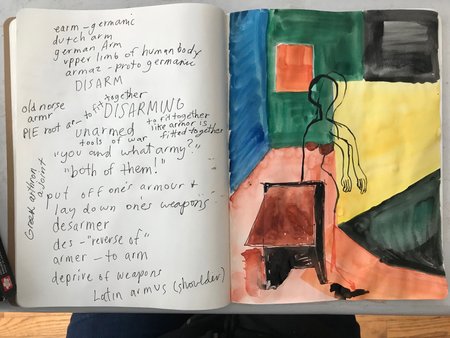 earm - germanic
dutch arm
german Arm
upper limb of human body
armaz - proto germanic
DISARM
old norse
armr
together
PIE root ar - to fit
DISARMING
unarmed
to fit together
like armor is
fitted together
tools of war
"you and what army?"
"both of them!"
Greek arthron
a joint
put off one's armour +
lay down one's weapons
desarmer
des - "reverse of"
armer - to arm
deprive of weapons
Latin armus (shoulder)